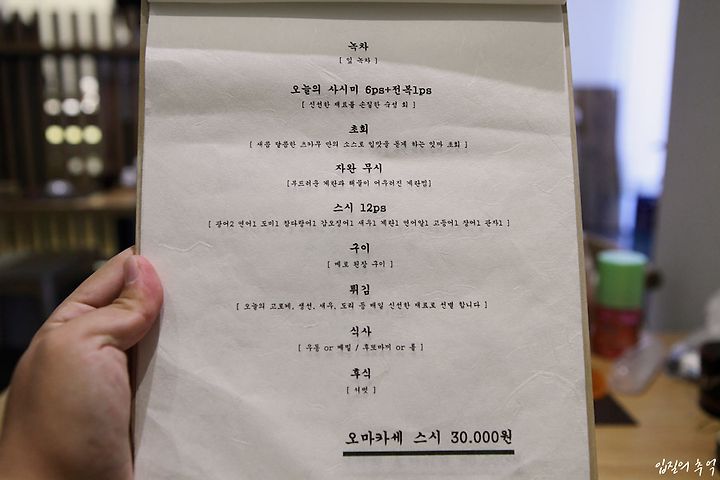 녹차
[ 잎 녹차 ]
오늘의 사시미 6ps+전복1ps
[ 신선한 재료를 손질한 숙성 회 ]
초회
[ 새콤 달콤한 츠카무 만의 소스로 입맛을 돋게 하는 입맛 초회 ]
자완 무시
[부드러운 계란과 해물이 어우러진 계란찜]
스시 12ps
[ 광어2 연어1 도미1 참다랑어1 갑오징어1 새우1 계란1 연어알1 고등어1 장어1 관자1 ]
구이
[ 메로 된장 구이 ]
튀김
[ 오늘의 고로케, 생선, 새우, 도리 등 매일 신선한 재료로 선별 합니다 ]
식사
[ 우동 or 메밀 / 후또마끼 or 롤 ]
후식
[ 셔벗 ]
오마카세 스시 30.000원
입질의 추억